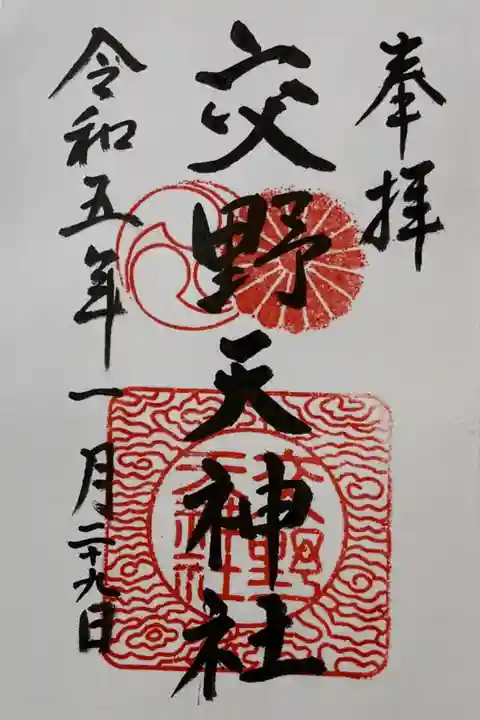 奉拝
交野天神社
令和五年一月二十九日
交野
天神社